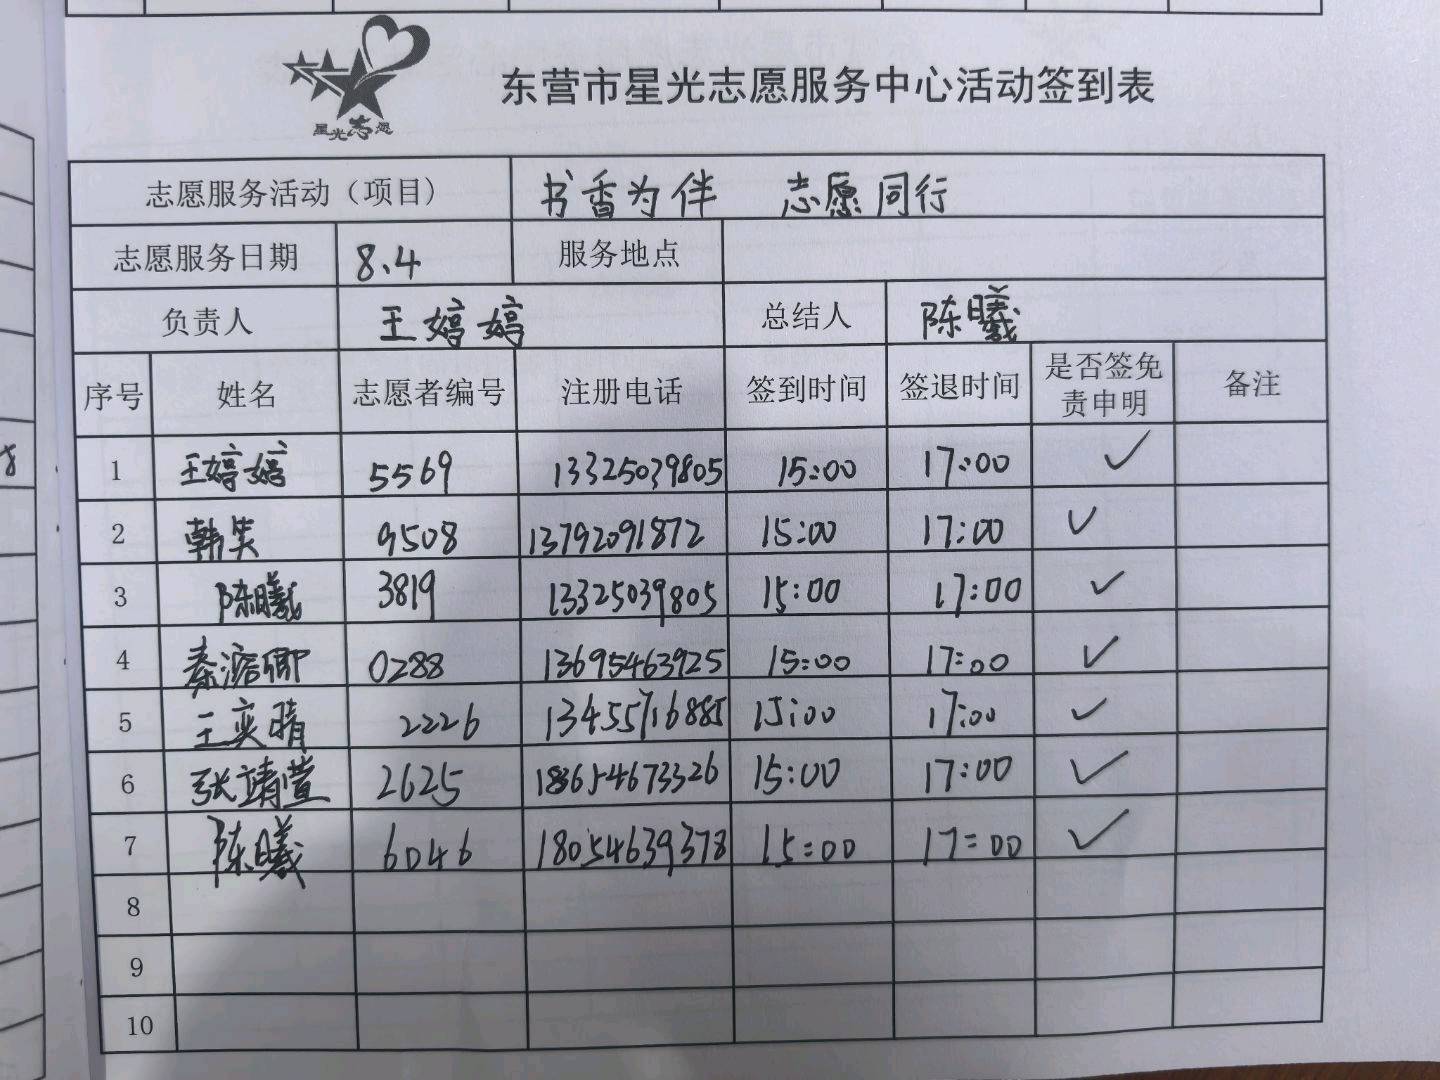 星光志愿
东营市星光志愿服务中心活动签到表
志愿服务活动（项目） 书香为伴 志愿同行
志愿服务日期 8.4 服务地点
负责人 王婷婷 总结人 陈曦
序号 姓名 志愿者编号 注册电话 签到时间 签退时间 是否签免责申明 备注
1 王婷婷 5569 13325039805 15:00 17:00 ✓
2 韩笑 9508 13792091872 15:00 17:00 ✓
3 陈曦 3819 13325039805 15:00 17:00 ✓
4 秦 卿 0288 13695463925 15:00 17:00 ✓
5 王奕晴 2226 13455716885 15:00 17:00 ✓
6 张靖萱 2625 18654673326 15:00 17:00 ✓
7 陈曦 6046 18054639378 15:00 17:00 ✓
8
9
10